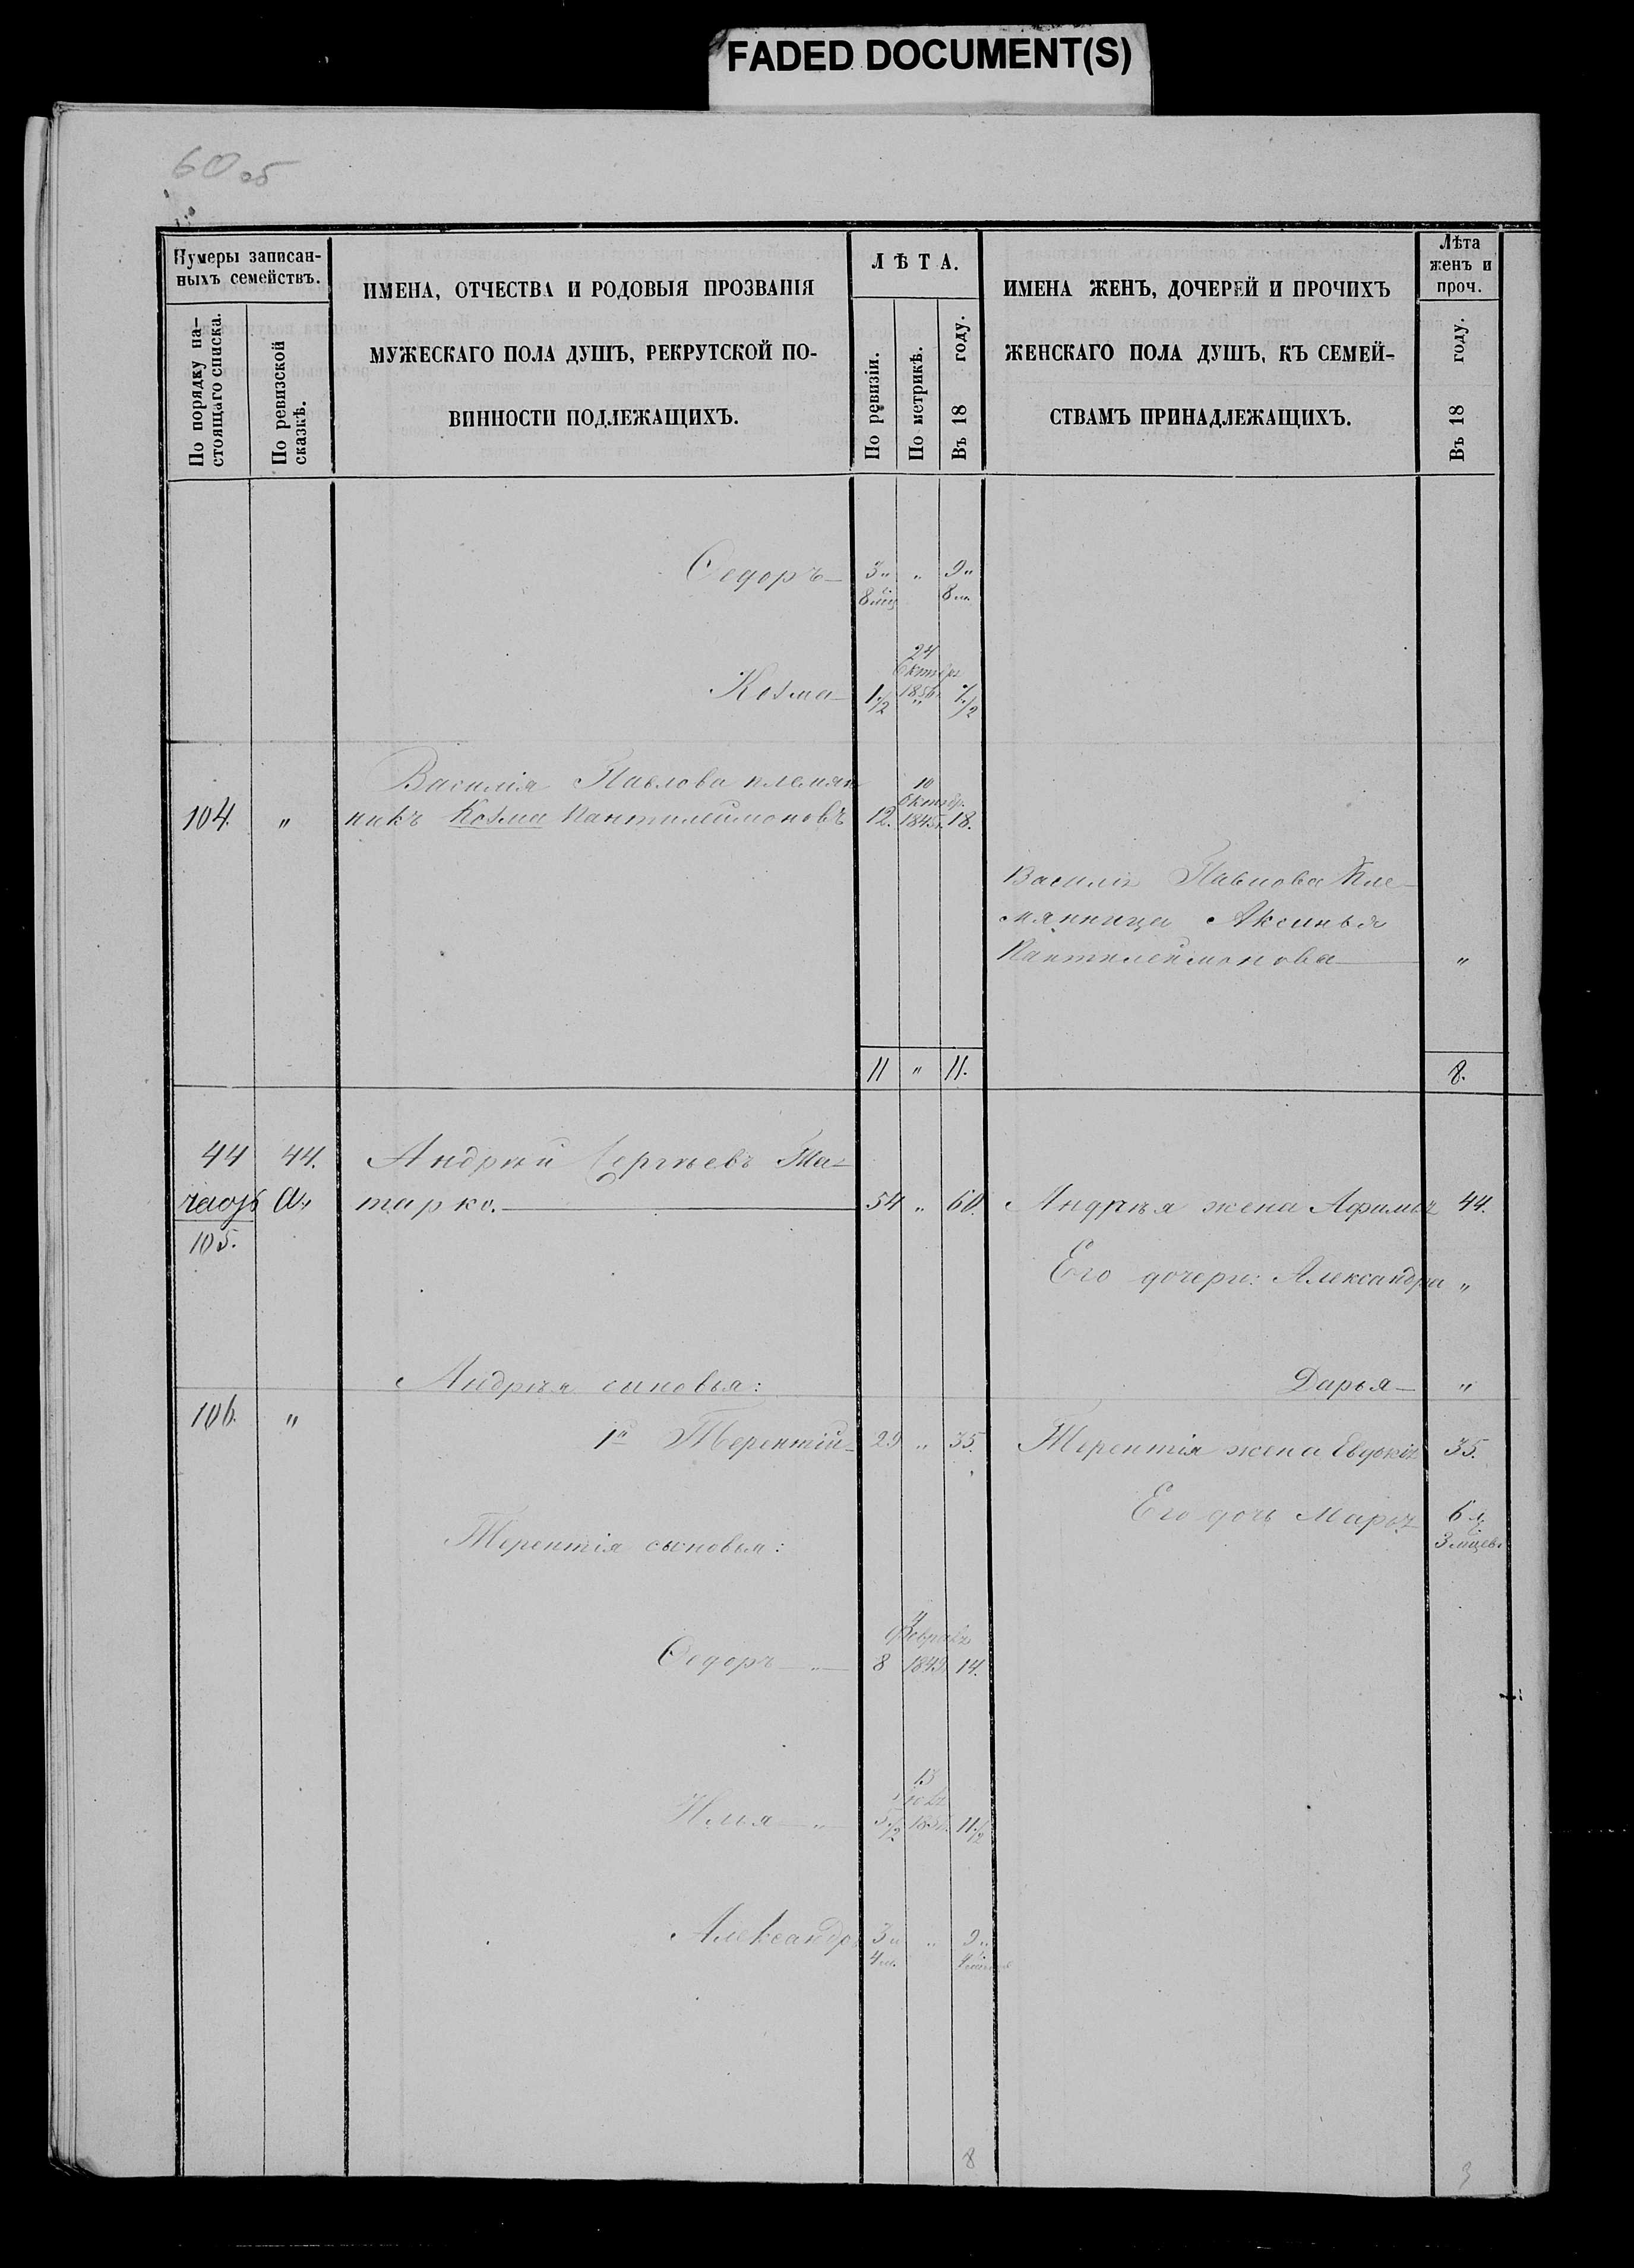 FADED DOCUMENT(S)
60 об
Нумеры записан-
ныхъ семействъ.
По порядку на-
стоящаго списка.
По ревизской
сказкѣ.
ИМЕНА, ОТЧЕСТВА И РОДОВЫЯ ПРОЗВАНІЯ
МУЖЕСКАГО ПОЛА ДУШЪ, РЕКРУТСКОЙ ПО-
ВИННОСТИ ПОДЛЕЖАЩИХЪ.
ЛѢТА.
По ревизіи.
По метрикѣ.
Въ 18 году.
ИМЕНА ЖЕНЪ, ДОЧЕРЕЙ И ПРОЧИХЪ
ЖЕНСКАГО ПОЛА ДУШЪ, КЪ СЕМЕЙ-
СТВАМЪ ПРИНАДЛЕЖАЩИХЪ.
Лѣта
женъ и
проч.
Въ 18 году.
Ѳедоръ 3 „ „ 9 „
8 мц 8 м.
24
Октябр
Козма 1 1/2 1856 7 1/2
Василія Павлова племян 10
Октябр.
104. „ никъ Козма Пантилеймоновъ 12. 1845. 18.
Василія Павлова Пле-
мянница Аксинья
Пантилеймонова „
11 „ 11. 8.
44 44. Андрей Сергѣевъ Та-
часть а. тарко. 54 „ 60. Андрѣя жена Афимья 44.
105.
Его дочери: Александра „
Андрѣя сыновья: Дарья „
106. „
1й Терентій 29 „ 35. Терентія жена Евдокія 35.
Его дочь Марья 6 л.
Терентія сыновья: 3 мцев.
4
Февраля
Ѳедоръ „ 8 1849 14.
13
Илья „ 5 1/2 1851. 11 1/2
Александръ 3 „ „ 9 „
4 м. 4
8 3